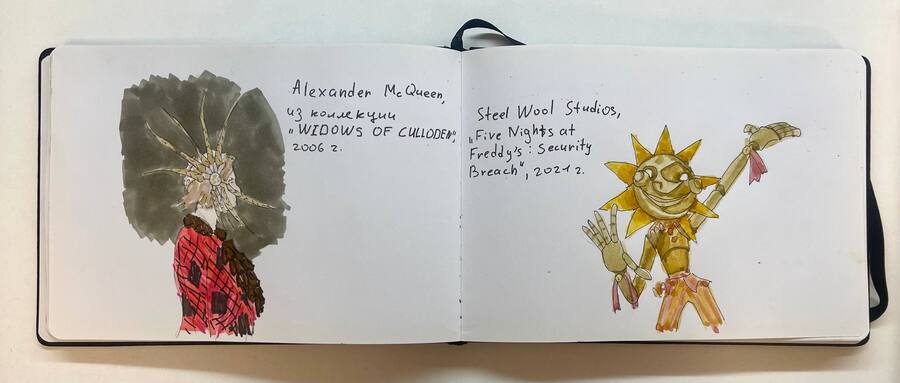 Alexander McQueen,
из коллекции
„WIDOWS OF CULLODEN",
2006 г.
Steel Wool Studios,
„Five Nights at
Freddy's: Security
Breach", 2021 г.